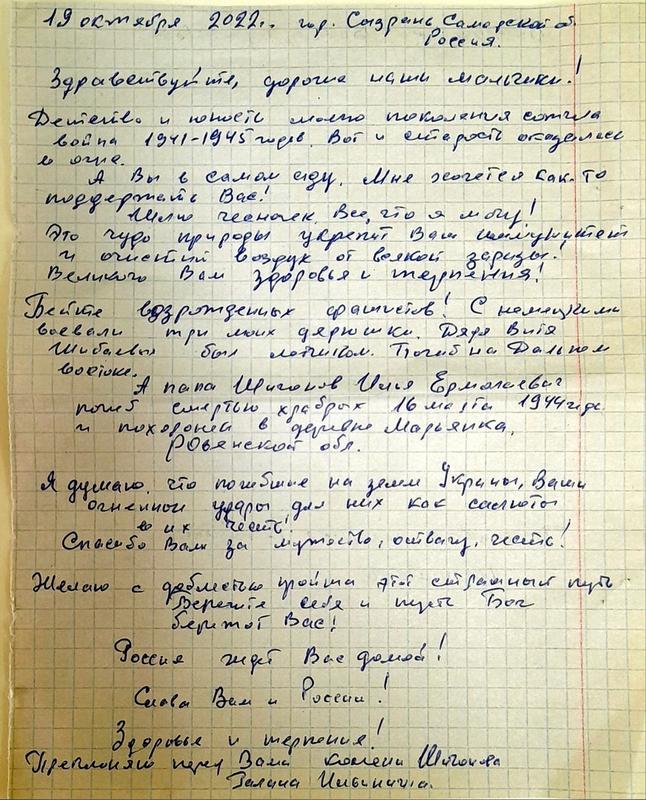 19 октября 2022г. гор. Сызрань Самарской об
Россия.
Здравствуйте, дорогие наши мальчики!
Детство и юность моего поколения сожгла
война 1941-1945 годов. Вот и старость оказалась
в огне.
А Вы в самом аду. Мне хочется как-то
поддержать Вас!
Шлю чесночек, Все, что я могу!
Это чудо природы укрепит Вам иммунитет
и очистит воздух от всякой заразы!
Великого Вам здоровья и терпения!
Бейте возрожденных фашистов! С немецкими
воевали три моих дядюшки. Дядя Витя
Шибаевых был летчиком. Погиб на Дальнем
востоке.
А папа Шигонов Илья Ермолаевич
погиб смертью храбрых 16 марта 1944 года
и похоронен в деревне Марьянка,
РОвенской обл.
Я думаю, что погибшие на земле Украины, Ваши
огненные удары для них как салюты
в их честь!
Спасибо Вам за мужество, отвагу, честь!
Желаю с доблестью пройти этот страшный путь
Берегите себя и пусть Бог
бережот Вас!
Россия ждет Вас домой!
Слава Вам и России!
Здоровье и терпения!
Преклоняю перед Вами колени Шигонова
Галина Ильинична.